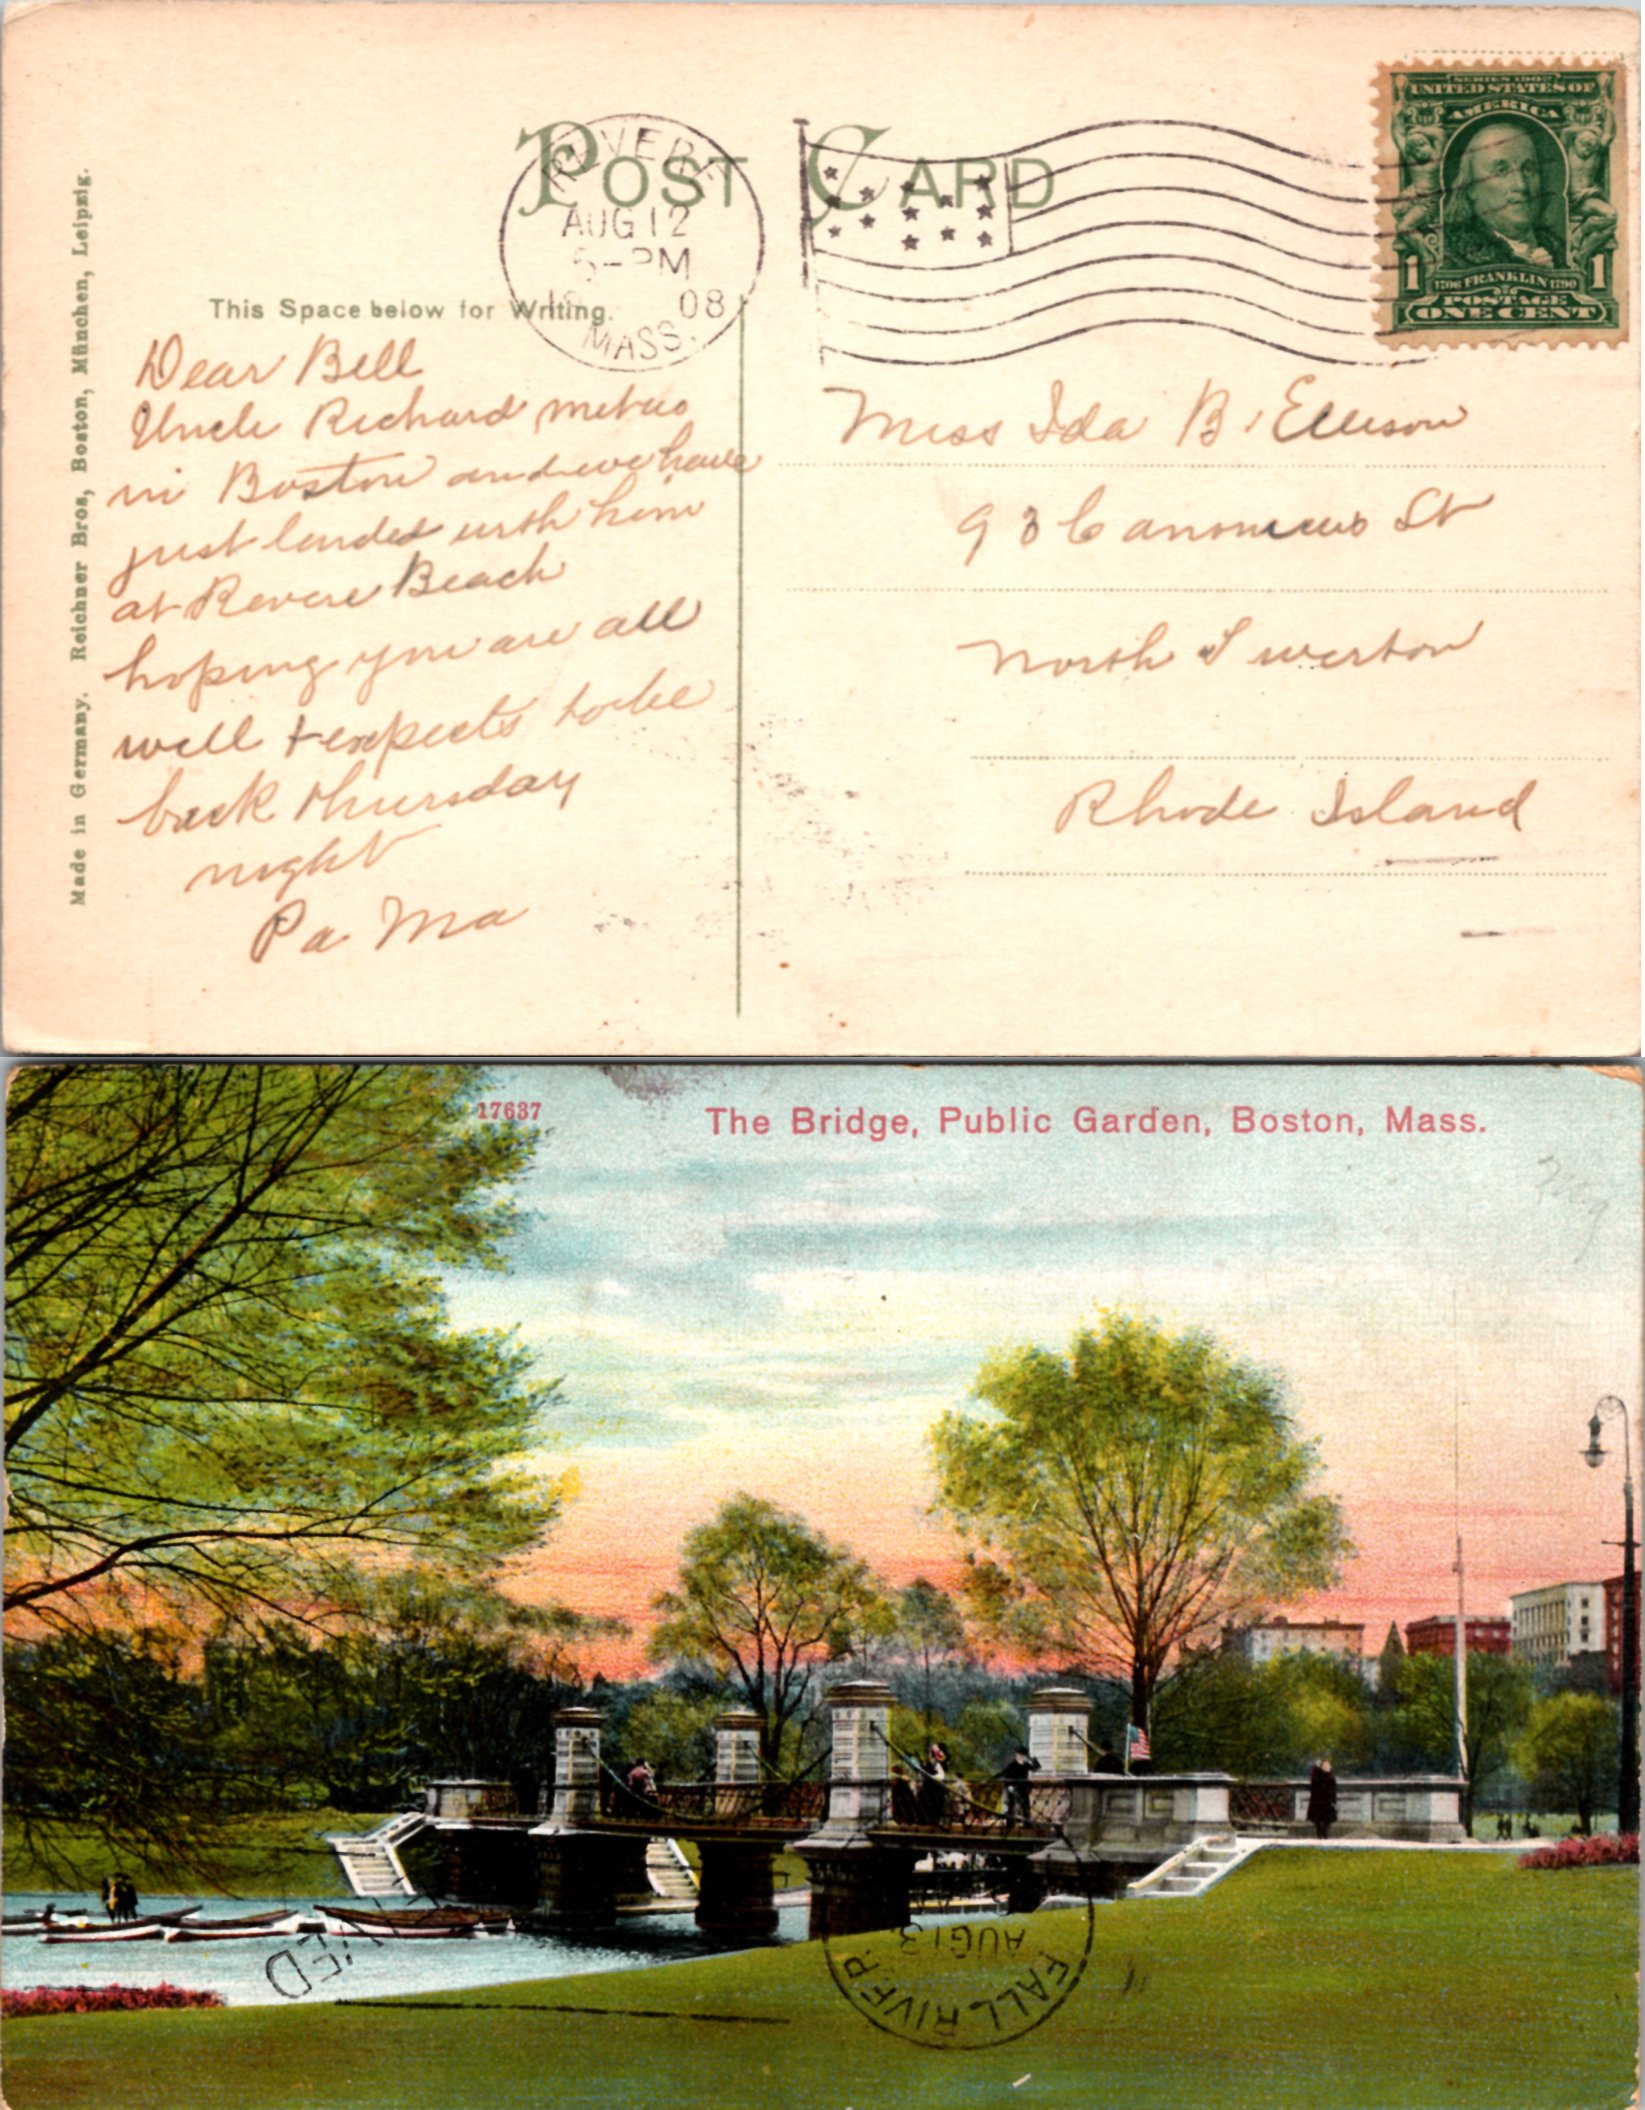 POST CARD
REVERE
AUG 12
5-PM
08
MASS.
SERIES 1902
UNITED STATES OF
AMERICA
1 1
1706 FRANKLIN 1790
POSTAGE
ONE CENT
Made in Germany. Reichner Bros, Boston, München, Leipzig.
This Space below for Writing.
Dear Bell
Uncle Richard met us
in Boston and we have
just landed with him
at Revere Beach
hoping you are all
well + expects to be
back thursday
night
Pa Ma
Miss Ida B. Ellison
93 Canonicus St
North Tiverton
Rhode Island
17637
The Bridge, Public Garden, Boston, Mass.
FALL RIVER
AUG 13